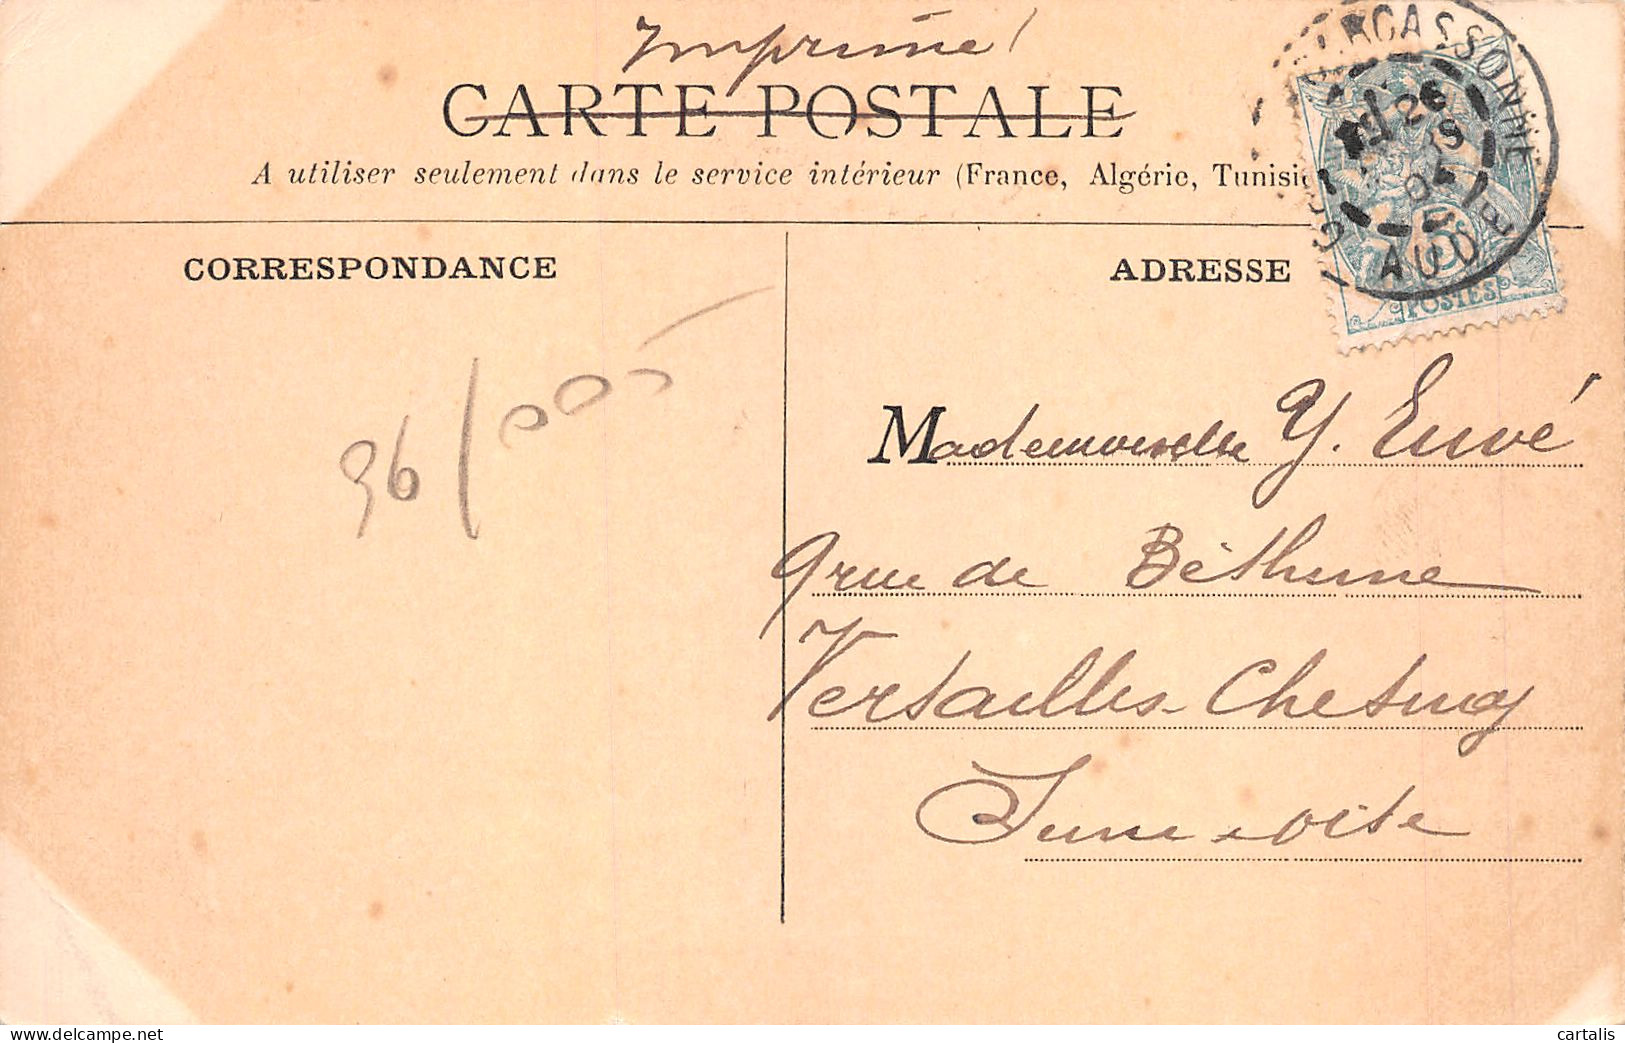 Imprimé
CARTE POSTALE
A utiliser seulement dans le service intérieur (France, Algérie, Tunisi
CORRESPONDANCE
ADRESSE
CARCASSONNE
AUDE
5
POSTES
96/005
Mademoiselle Y.
9 rue de Béthune
Versailles-Chesnay
Seine & Oise
delcampe.net
cartalis